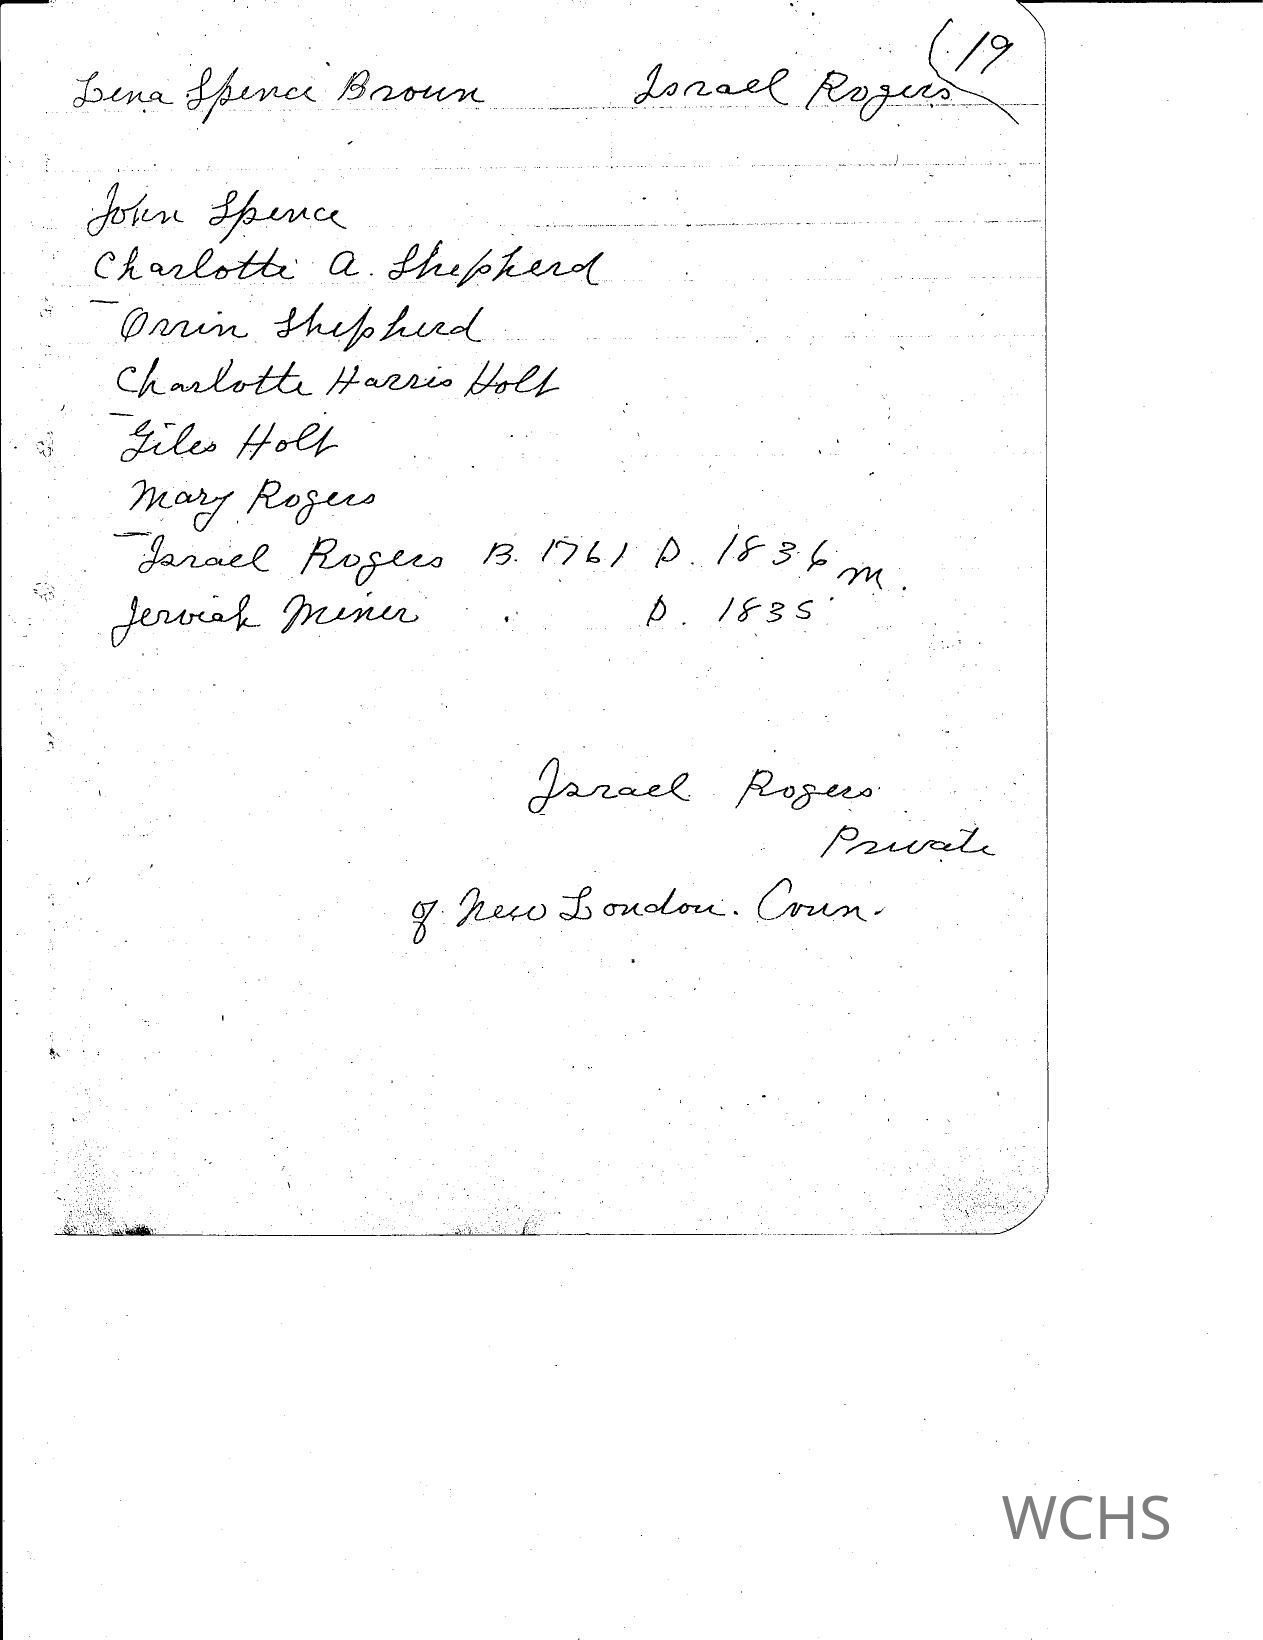 19
Lena Spence Brown Israel Rogers
John Spence
Charlotte A. Shepherd
Orrin Shepherd
Charlotte Harris Holt
Giles Holt
Mary Rogers
Israel Rogers B. 1761 D. 1836 m.
Jerviah Miner D. 1835
Israel Rogers
Private
of New London. Conn.
WCHS